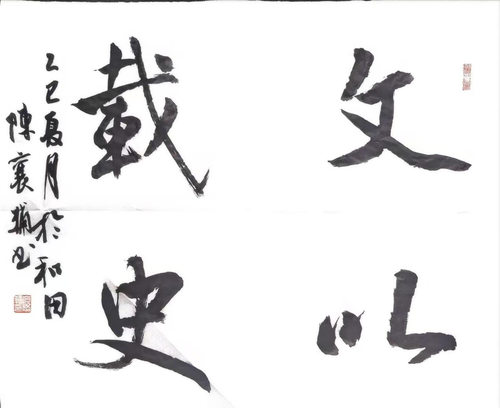 文以
載史
乙巳夏月於和田
陳襄书